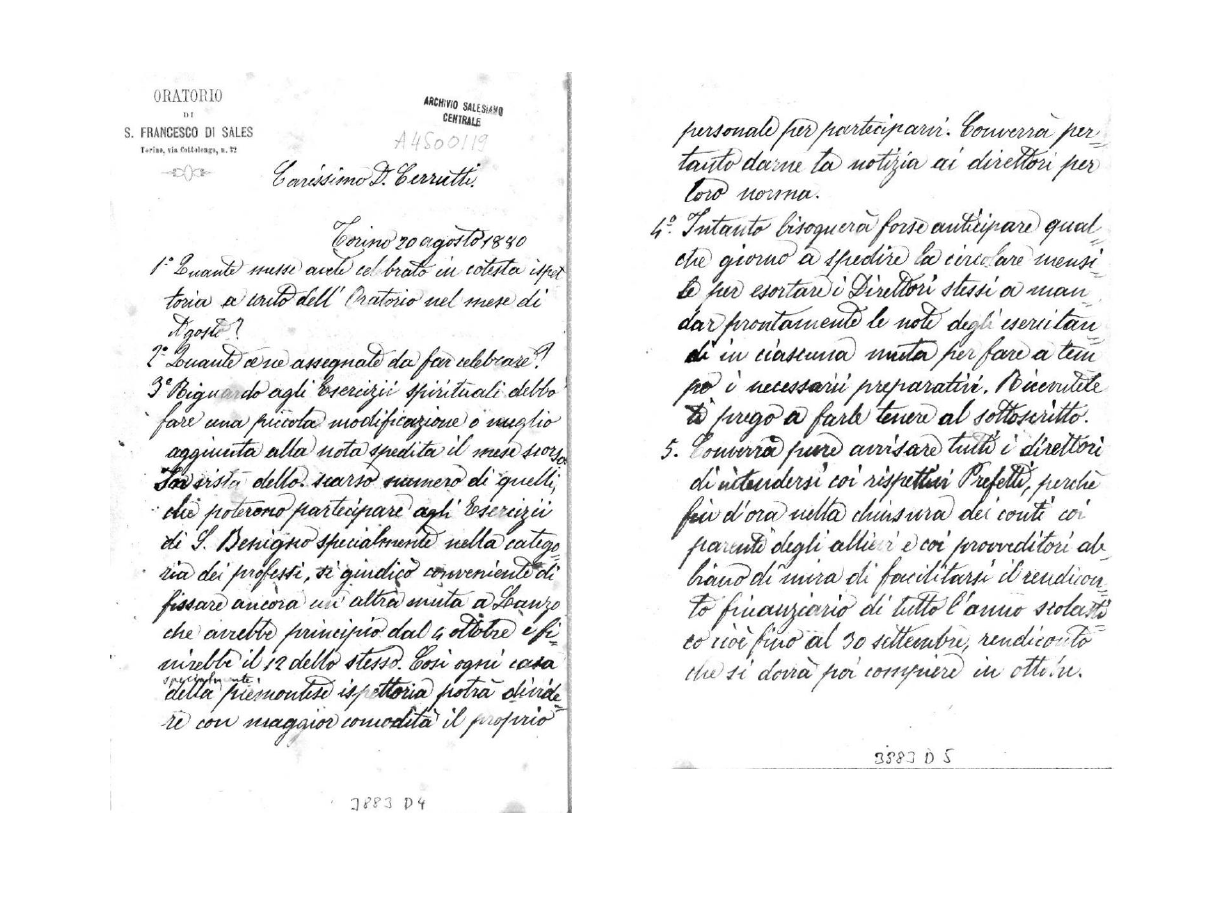 ORATORIO
DI
S. FRANCESCO DI SALES
Torino, via Cottolengo, n. 32
ARCHIVIO SALESIANO
CENTRALE
A4500119
Carissimo D. Cerrutti.
Torino 20 agosto 1880
1º Quante messe avete celebrato in cotesta ispet
toria a            dell' Oratorio nel mese di
Agosto?
2º Quante          assegnate da far celebrare?
3º Riguardo agli Esercizii spirituali debbo
fare una piccola modificazione o meglio
aggiunta alla nota spedita il mese scorso
In vista dello scarso numero di quelli,
che poterono partecipare agli Esercizii
di S. Benigno specialmente nella catego=
ria dei professi, si giudicò conveniente di
fissare ancora un' altra muta a Lanzo
che avrebbe principio dal 4 ottobre e fi=
nirebbe il 12 dello stesso. Così ogni casa
specialmente
della piemontese ispettoria potrà divide=
re con maggior comodità il proprio
3883 D4
personale per participarvi. Converrà per=
tanto darne la notizia ai direttori per
loro norma.
4º. Intanto bisognerà forse anticipare qual=
che giorno a spedire la circolare mensi=
le per esortare i Direttori stessi a man=
dar prontamente le note degli esercitan
di in ciascuna muta per fare a tem
po i necessarii preparativi. Ricevutele
ti prego a farle tenere al sottoscritto.
5. Converrà pure avvisare tutti i direttori
di intendersi coi rispettivi Prefetti, perchè
fin d'ora nella chiusura dei conti coi
parenti degli allievi e coi provveditori ab=
biano di mira di facilitarsi il rendicon=
to finanziario di tutto l'anno scolasti=
co cioè fino al 30 settembre, rendiconto
che si dovrà poi compiere in ottobre.
3883 D 5